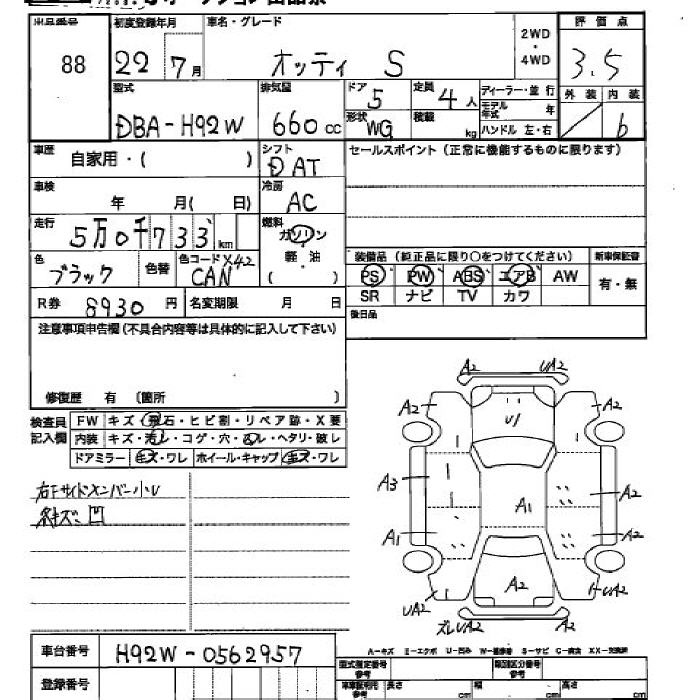 出品番号 初度登録年月 車名・グレード 2WD・4WD 評価点
88 22年 7月 オッティ S 3.5
型式 排気量 ドア 5 定員 4人 ディーラー・並行 外装 内装
DBA-H92W 660cc 形状 WG 積載 kg モデル年式 年 b
ハンドル 左・右
車歴 自家用・( ) シフト DAT セールスポイント(正常に機能するものに限ります)
車検 年 月( 日) 冷房 AC
走行 5万0千733km 燃料 ガソリン 軽・油 ( )
装備品(純正品に限り○をつけてください) 新車保証書
色 ブラック 色替 色コード X42 CAN PS PW ABS エアB AW 有・無
SR ナビ TV カワ
R券 8930円 名変期限 月 日 後日品
注意事項申告欄(不具合内容等は具体的に記入して下さい)
修復歴 有 〔箇所 〕
検査員記入欄 FW キズ・飛石・ヒビ割・リペア跡・X要
内装 キズ・汚レ・コゲ・穴・ヘタリ・破レ
ドアミラー キズ・ワレ ホイール・キャップ キズ・ワレ
右下サイドメンバー小U
凹
A2 UA2
A2 U1 A2
A3 A1 A2
A1 A2
UA2 A2 UA2
ズレUA2 A2
A-キズ E-エクボ U-凹み W-補修跡 S-サビ C-腐食 XX-交換済
車台番号 H92W-0562957 型式指定番号 参考 類別区分番号 参考
登録番号 長さ cm 幅 cm 高さ cm